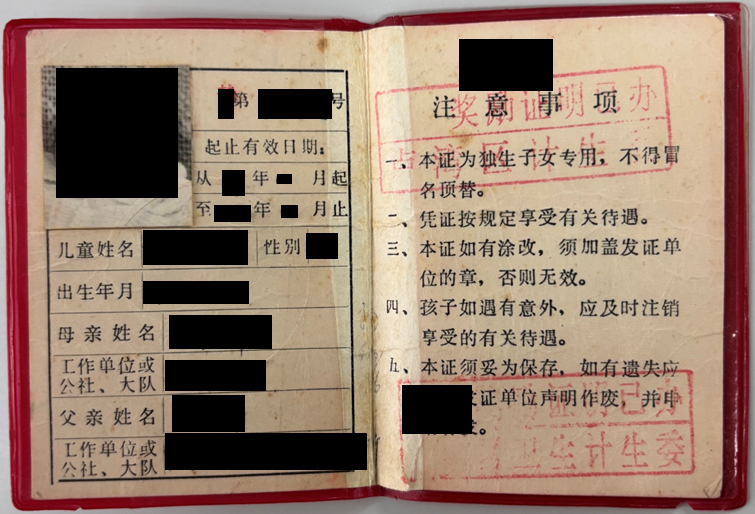 第 号
起止有效日期:
从 年 月起
至 年 月止
儿童姓名 性别
出生年月
母亲姓名
工作单位或
公社、大队
父亲姓名
工作单位或
公社、大队
注意事项
奖励证明已办
湾区计生
一、本证为独生子女专用,不得冒
名顶替。
二、凭证按规定享受有关待遇。
三、本证如有涂改,须加盖发证单
位的章,否则无效。
四、孩子如遇有意外,应及时注销
享受的有关待遇。
五、本证须妥为保存,如有遗失应
发证单位声明作废,并申
发。
证明已办
卫生计生委